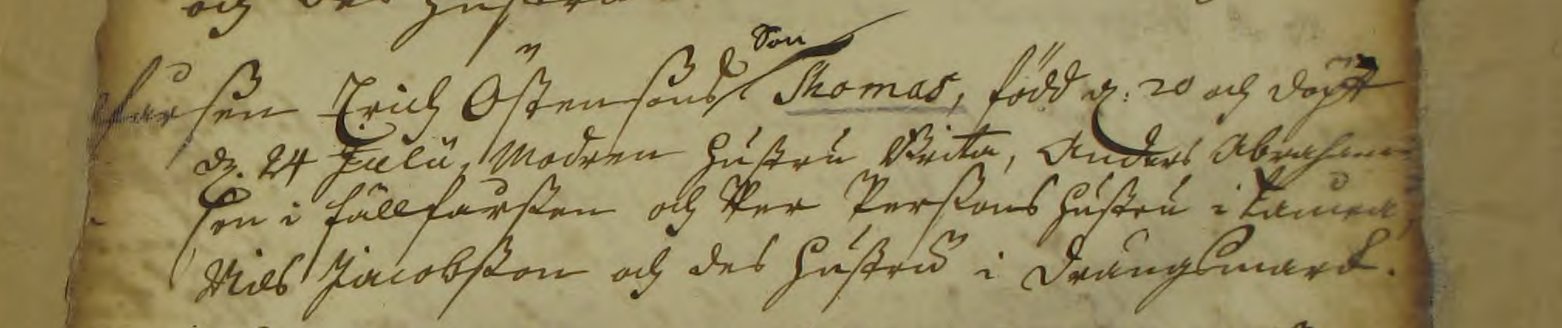 och des hustru
farsen Erich Östensons Son Thomas, född d. 20 och döpt
d. 24 Julii, Modren hustru Brita, Anders Abraham
son i fällforssen och Per Perssons hustru i
Nils Jacobsson och des hustru i Drängsmark.